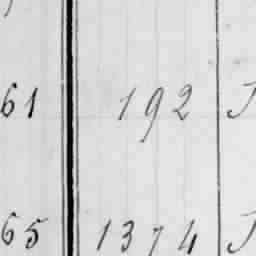 61 192 J
65 1374 J